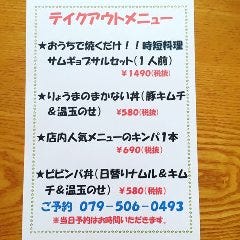 テイクアウトメニュー
★おうちで焼くだけ!!時短料理
サムギョプサルセット(1人前)
¥1490(税抜)
★りょうまのまかない丼(豚キムチ
&温玉のせ) ¥580(税抜)
★店内人気メニューのキンパ1本
¥690(税抜)
★ビビンバ丼(日替りナムル&キム
チ&温玉のせ) ¥580(税抜)
ご予約 079-506-0493
※当日予約はお時間いただきます。